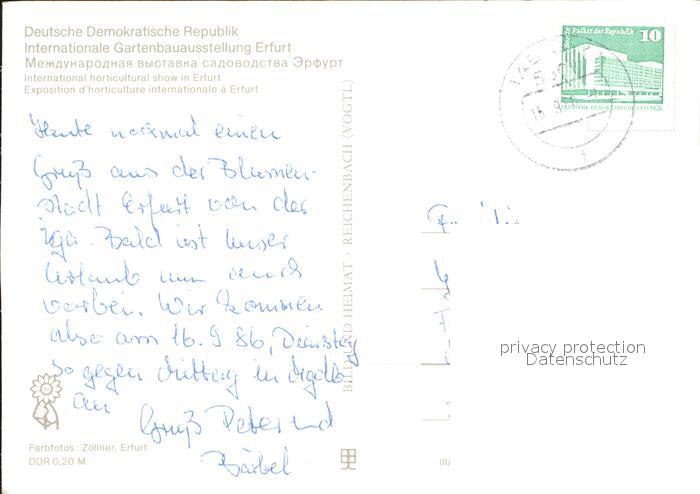 Deutsche Demokratische Republik
Internationale Gartenbauausstellung Erfurt
Международная выставка садоводства Эрфурт
International horticultural show in Erfurt
Exposition d'horticulture internationale à Erfurt
Heute nochmal einen
Gruß aus der Blumen-
stadt Erfurt von der
iga. Bald ist unser
Urlaub nun auch
vorbei. Wir kommen
also am 16.9.86, Dienstag
so gegen Mittag in
an
Gruß Peter und
Bärbel
Farbfotos: Zöllner, Erfurt
DDR 0,20 M
BILD UND HEIMAT · REICHENBACH (VOGTL)
III/
Berlin Palast der Republik
10
DEUTSCHE DEMOKRATISCHE REPUBLIK
privacy protection
Datenschutz